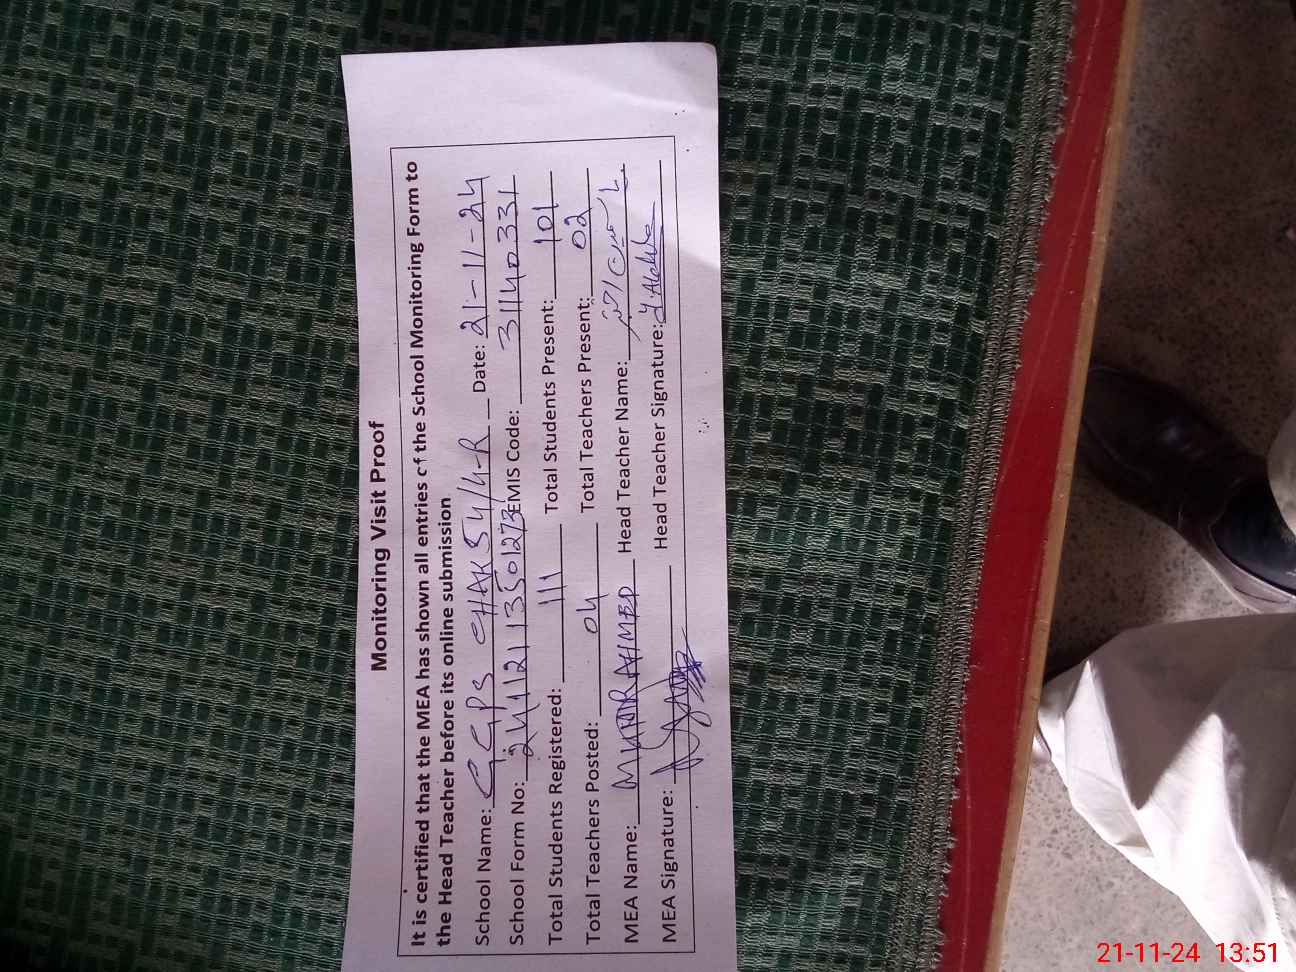 Monitoring Visit Proof
It is certified that the MEA has shown all entries of the School Monitoring Form to
the Head Teacher before its online submission
School Name: GGPS CHAK 54/4-R Date: 21-11-24
School Form No: 24112113501273 EMIS Code: 31140331
Total Students Registered: 111 Total Students Present: 101
Total Teachers Posted: 04 Total Teachers Present: 02
MEA Name: AHMED Head Teacher Name:
MEA Signature: Head Teacher Signature:
21-11-24 13:51